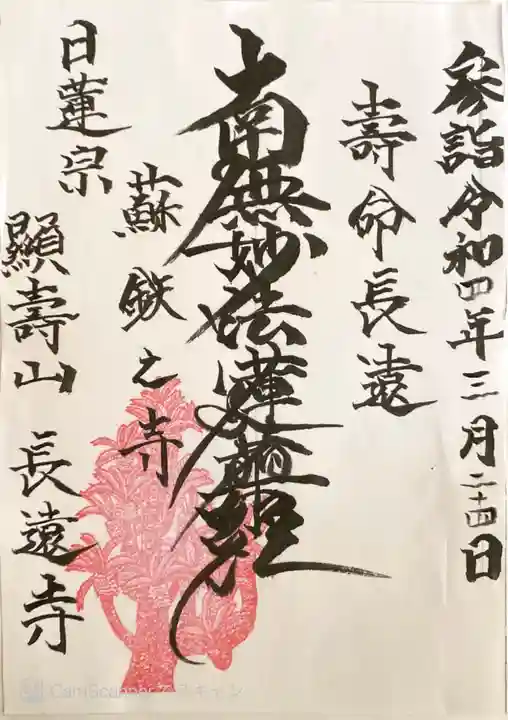 参詣 令和四年三月二十四日
壽命長遠
南無妙法蓮華經
蘇鉄之寺
日蓮宗
顯壽山 長遠寺
CamScannerでスキャン